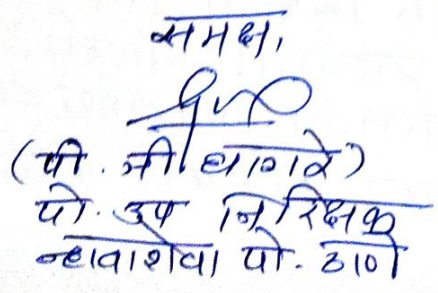 समक्ष,
(पी. जी. धागरे)
पो. उप निरिक्षक
न्हावाशेवा पो. ठाणे